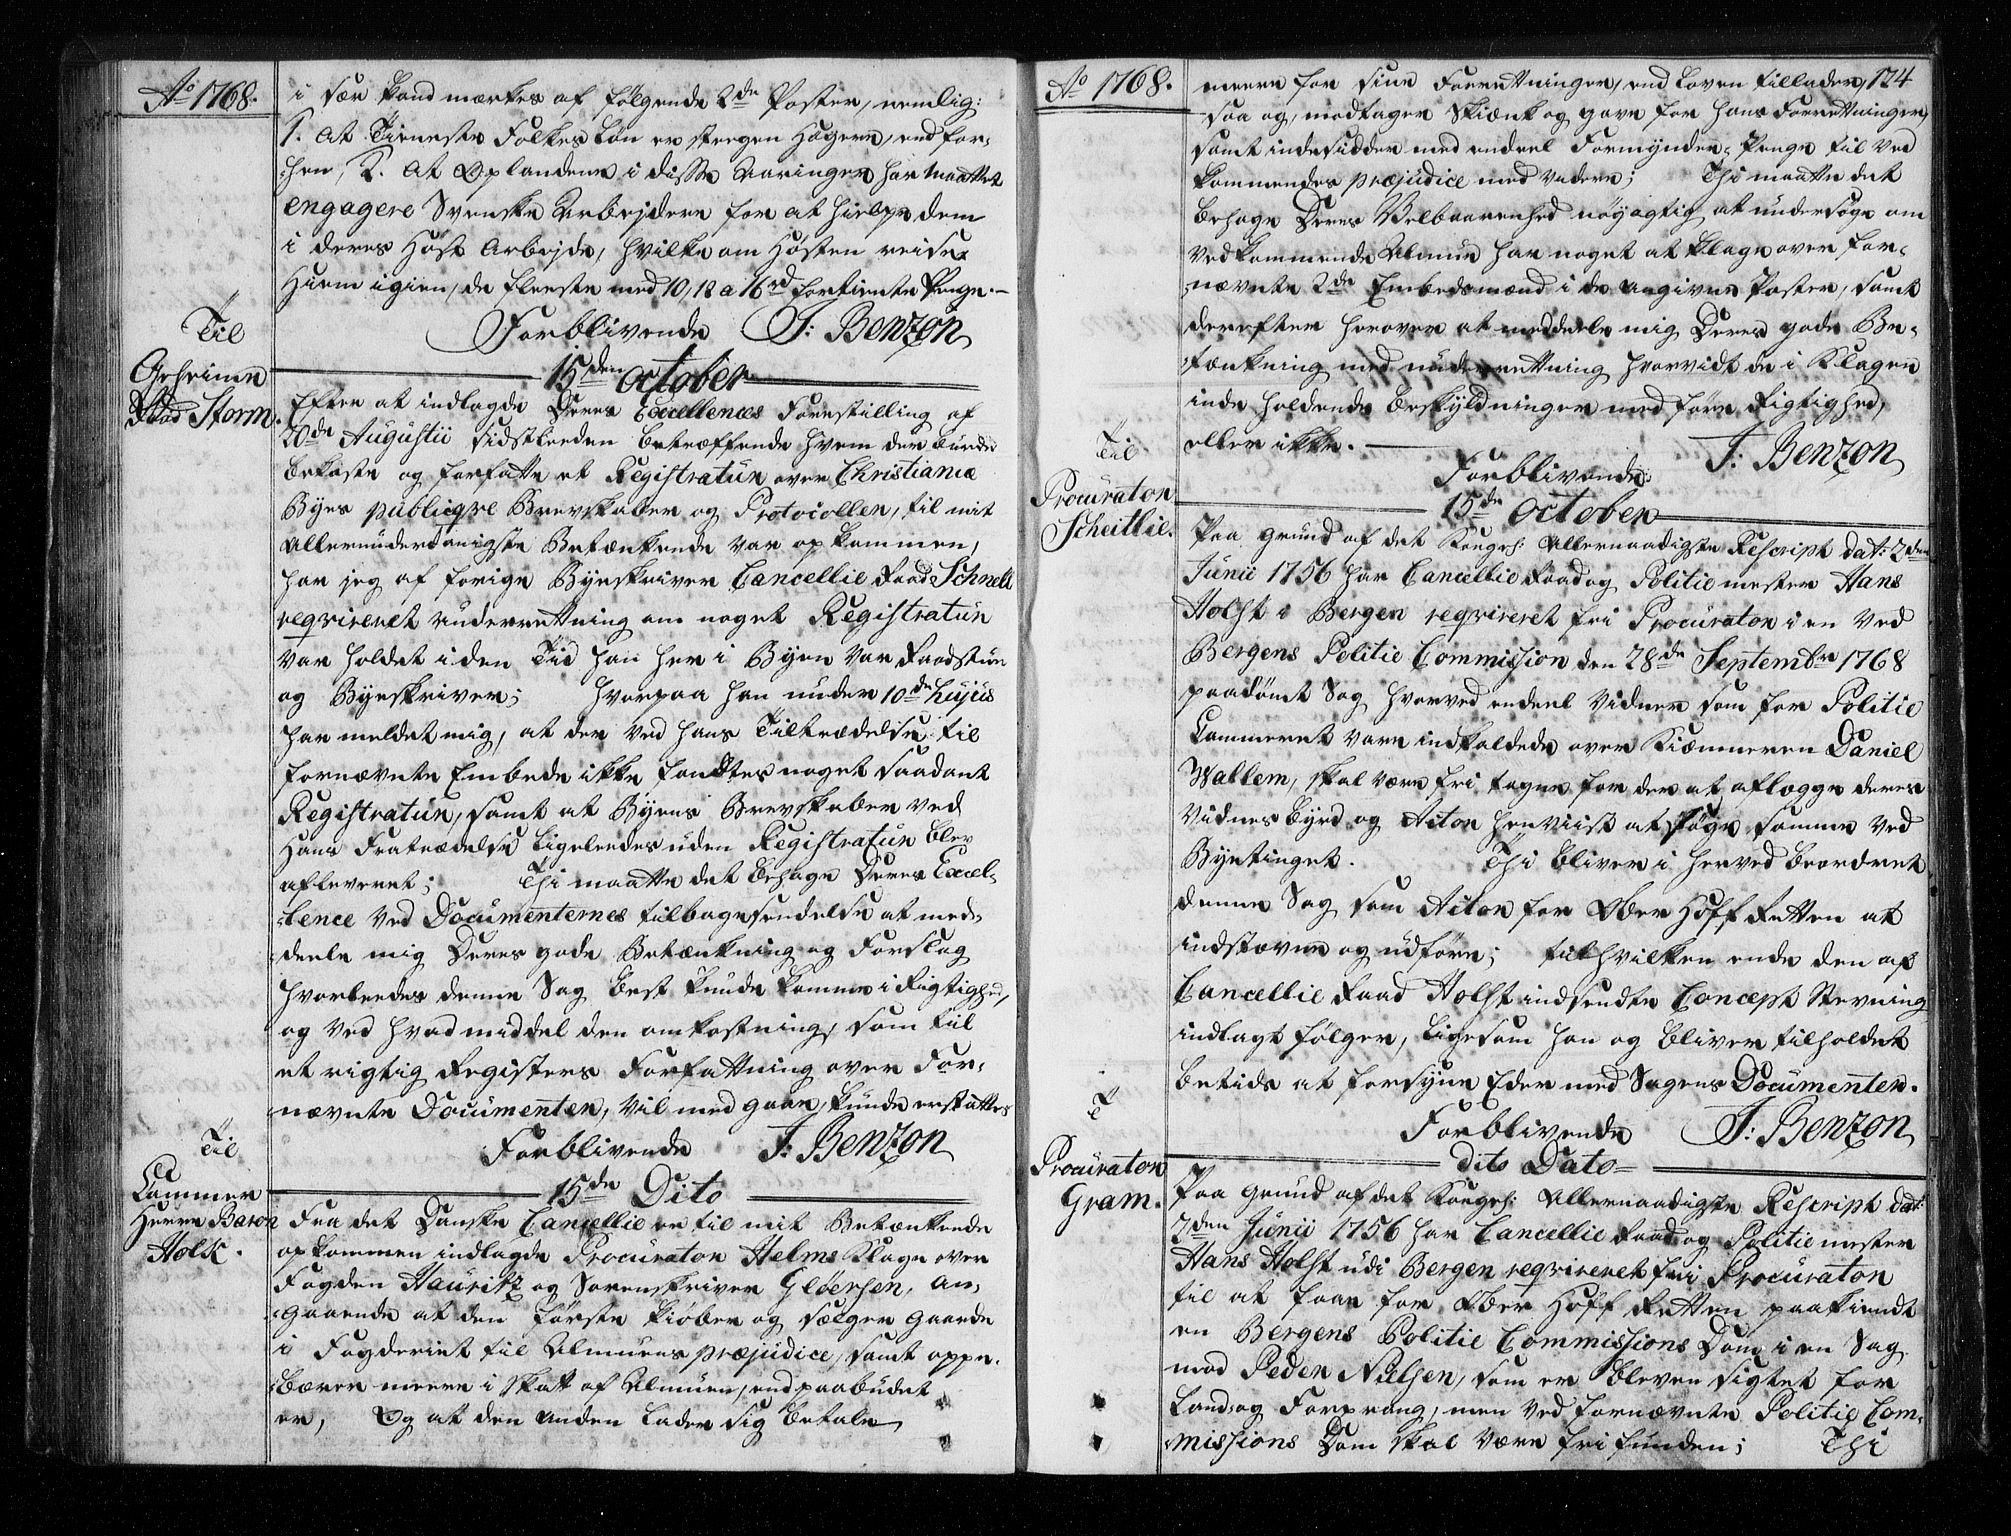 Ao 1768.
i sær kand mærkes af følgende 2de Poster, nemlig:
1. at Tieneste Folkes Løn er stegen høyere, end for-
hen, 2. at Oplandene i disse Aaringer har maattet
engagere Svenske Arbejdere for at hielpe dem
i deres Høst Arbejde, hvilke om Høsten reiser
hiem igien, de fleeste med 10, 12 a 16 rd fortiente Penge. –
Forblivende J: Benzon
Til
Geheime
Raad Storm.
15den October
Efter at indlagde Deres Excellences Forestilling af
20de Augustii sidstleeden betræffende hvem der burde
bekoste og forfatte et Registratur over Christianiæ
Byes publiqve Brevskaber og Protocoller, til mit
allerunderdanigste Betænkende var opkommen,
har jeg af forrige Byeskriver Cancellie Raad Schnell
reqvireret underretning om noget Registratur
var holdet i den Tid han her i Byen var Raadstue
og Byeskriver; hvorpaa han under 10de hujus
har meldet mig, at der ved hans Tiltrædelse til
fornævnte Embede ikke fandtes noget saadant
Registratur, samt at Byens Brevskaber ved
hans Fratrædelse ligeleedes uden Registratur blev
afleveret; Thi maatte det behage Deres Excel-
lence ved Documenternes tilbagesendelse at med-
deele mig Deres gode Betænkning og Forslag
hvorleedes denne Sag best kunde komme i Rigtighed,
og ved hvad middel den omkostning, som til
et rigtig Registers Forfattning over For-
nævnte Documenter, vil med gaae, kunde erstattes
Forblivende J: Benzon
Til
Cammer
Herre Baron
Holk.
15de Dito
Fra det Danske Cancellie er til mit Betænkende
opkommen indlagde Procurator Helms Klage over
Fogden Hauritz og Sorenskriver Gløersen, an-
gaaende at den første kiøber og sælger Gaarde
i Fogderiet til Almuens præjudice, samt oppe-
bærer meere i Skatt af Almuen, end paabudet
er, Og at den Anden lader sig betale
Ao 1768.
174
meere for sine Forretninger, end Loven tillader,
saa og, modtager Skiænk og gave for hans Forretninger,
samt indesidder med endeel Formynder-Penge til Ved
kommendes præjudice med videre; Thi maatte det
behage Deres Velbaarenhed nøyagtig at undersøge om
vedkommende Almue har noget at klage over for-
nævnte 2de Embedsmænd i de angivne Poster, samt
derefter herover at meddeele mig Deres gode Be-
tænkning med underretning hvorvidt de i Klagen
inde holdende beskyldninger medføre Rigtighed,
eller ikke.
Forblivende J: Benzon
Til
Procurator
Scheitlie.
15de October
Paa grund af det Kongel: Allernaadigste Rescript dat: 2den
Junii 1756 har Cancellie Raad og Politiemester Hans
Holst i Bergen reqvireret fri Procurator i en Ved
Bergens Politie Commission den 28de Septembr 1768
paadømt Sag hvorved endeel Vidner som for Politie
Cammeret vare indkaldede over Kiæmneren Daniel
Wallem, skal være fritagne for der at aflegge deres
Vidnesbyrd og Acton henviist at søge samme ved
Byetinget. Thi bliver i herved beordret
denne Sag som Acton for Ober Hoff Retten at
indstævne og udføre; til hvilken ende den af
Cancellie Raad Holst indsendte Concept Stevning
indlagt følger, ligesom han og bliver tilholdet
betids at forsyne Eder med Sagens Documenter.
Forblivende J: Benzon
T
Procurator
Gram.
dito Dato
Paa Grund af det Kongel: Allernaadigste Rescript dat:
2den Junii 1756 har Cancellie Raad og Politiemester
Hans Holst udi Bergen reqvireret fri Procurator
til at faae for Ober Hoff Retten paakiendt
en Bergens Politie Commissions Dom i en Sag
mod Peder Nielsen, som er bleven sigtet for
Land og Forprang, men ved fornævnte Politie Com-
missions Dom skal være frifunden; Thi